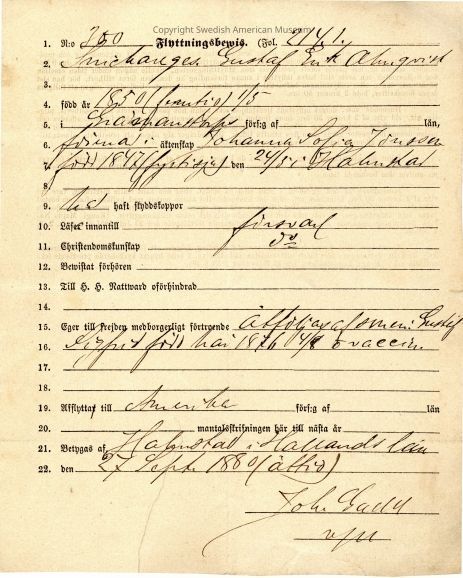 Copyright Swedish American Museum
1. N:o 350 Flyttningsbewis. (Fol. 2141.
2. Gustaf Erik Almqvist
3.
4. född är 1850 (femtio) 1/5
5. i förs:g af län,
6. i äktenskap Johanna Sofia Jönsson
7. född 1847 (fyrtisju) den 24/5 i Halmstad
8.
9. haft skyddskoppor
10. Läser innantill försvarl
11. Christendomskunskap do
12. Bewistat förhören
13. Till H. H. Nattward oförhindrad
14.
15. Eger till frejden medborgerligt förtroende åtföljas af sonen: Gustaf
16. Sigfrid född här 1876 vaccin
17.
18.
19. Afflyttar till Amerika förs:g af län
20. mantalsskrifningen här till nästa år
21. Betygas af Halmstad i Hallands län
22. den 27 Sept. 1880 (åttio)
John Gadd